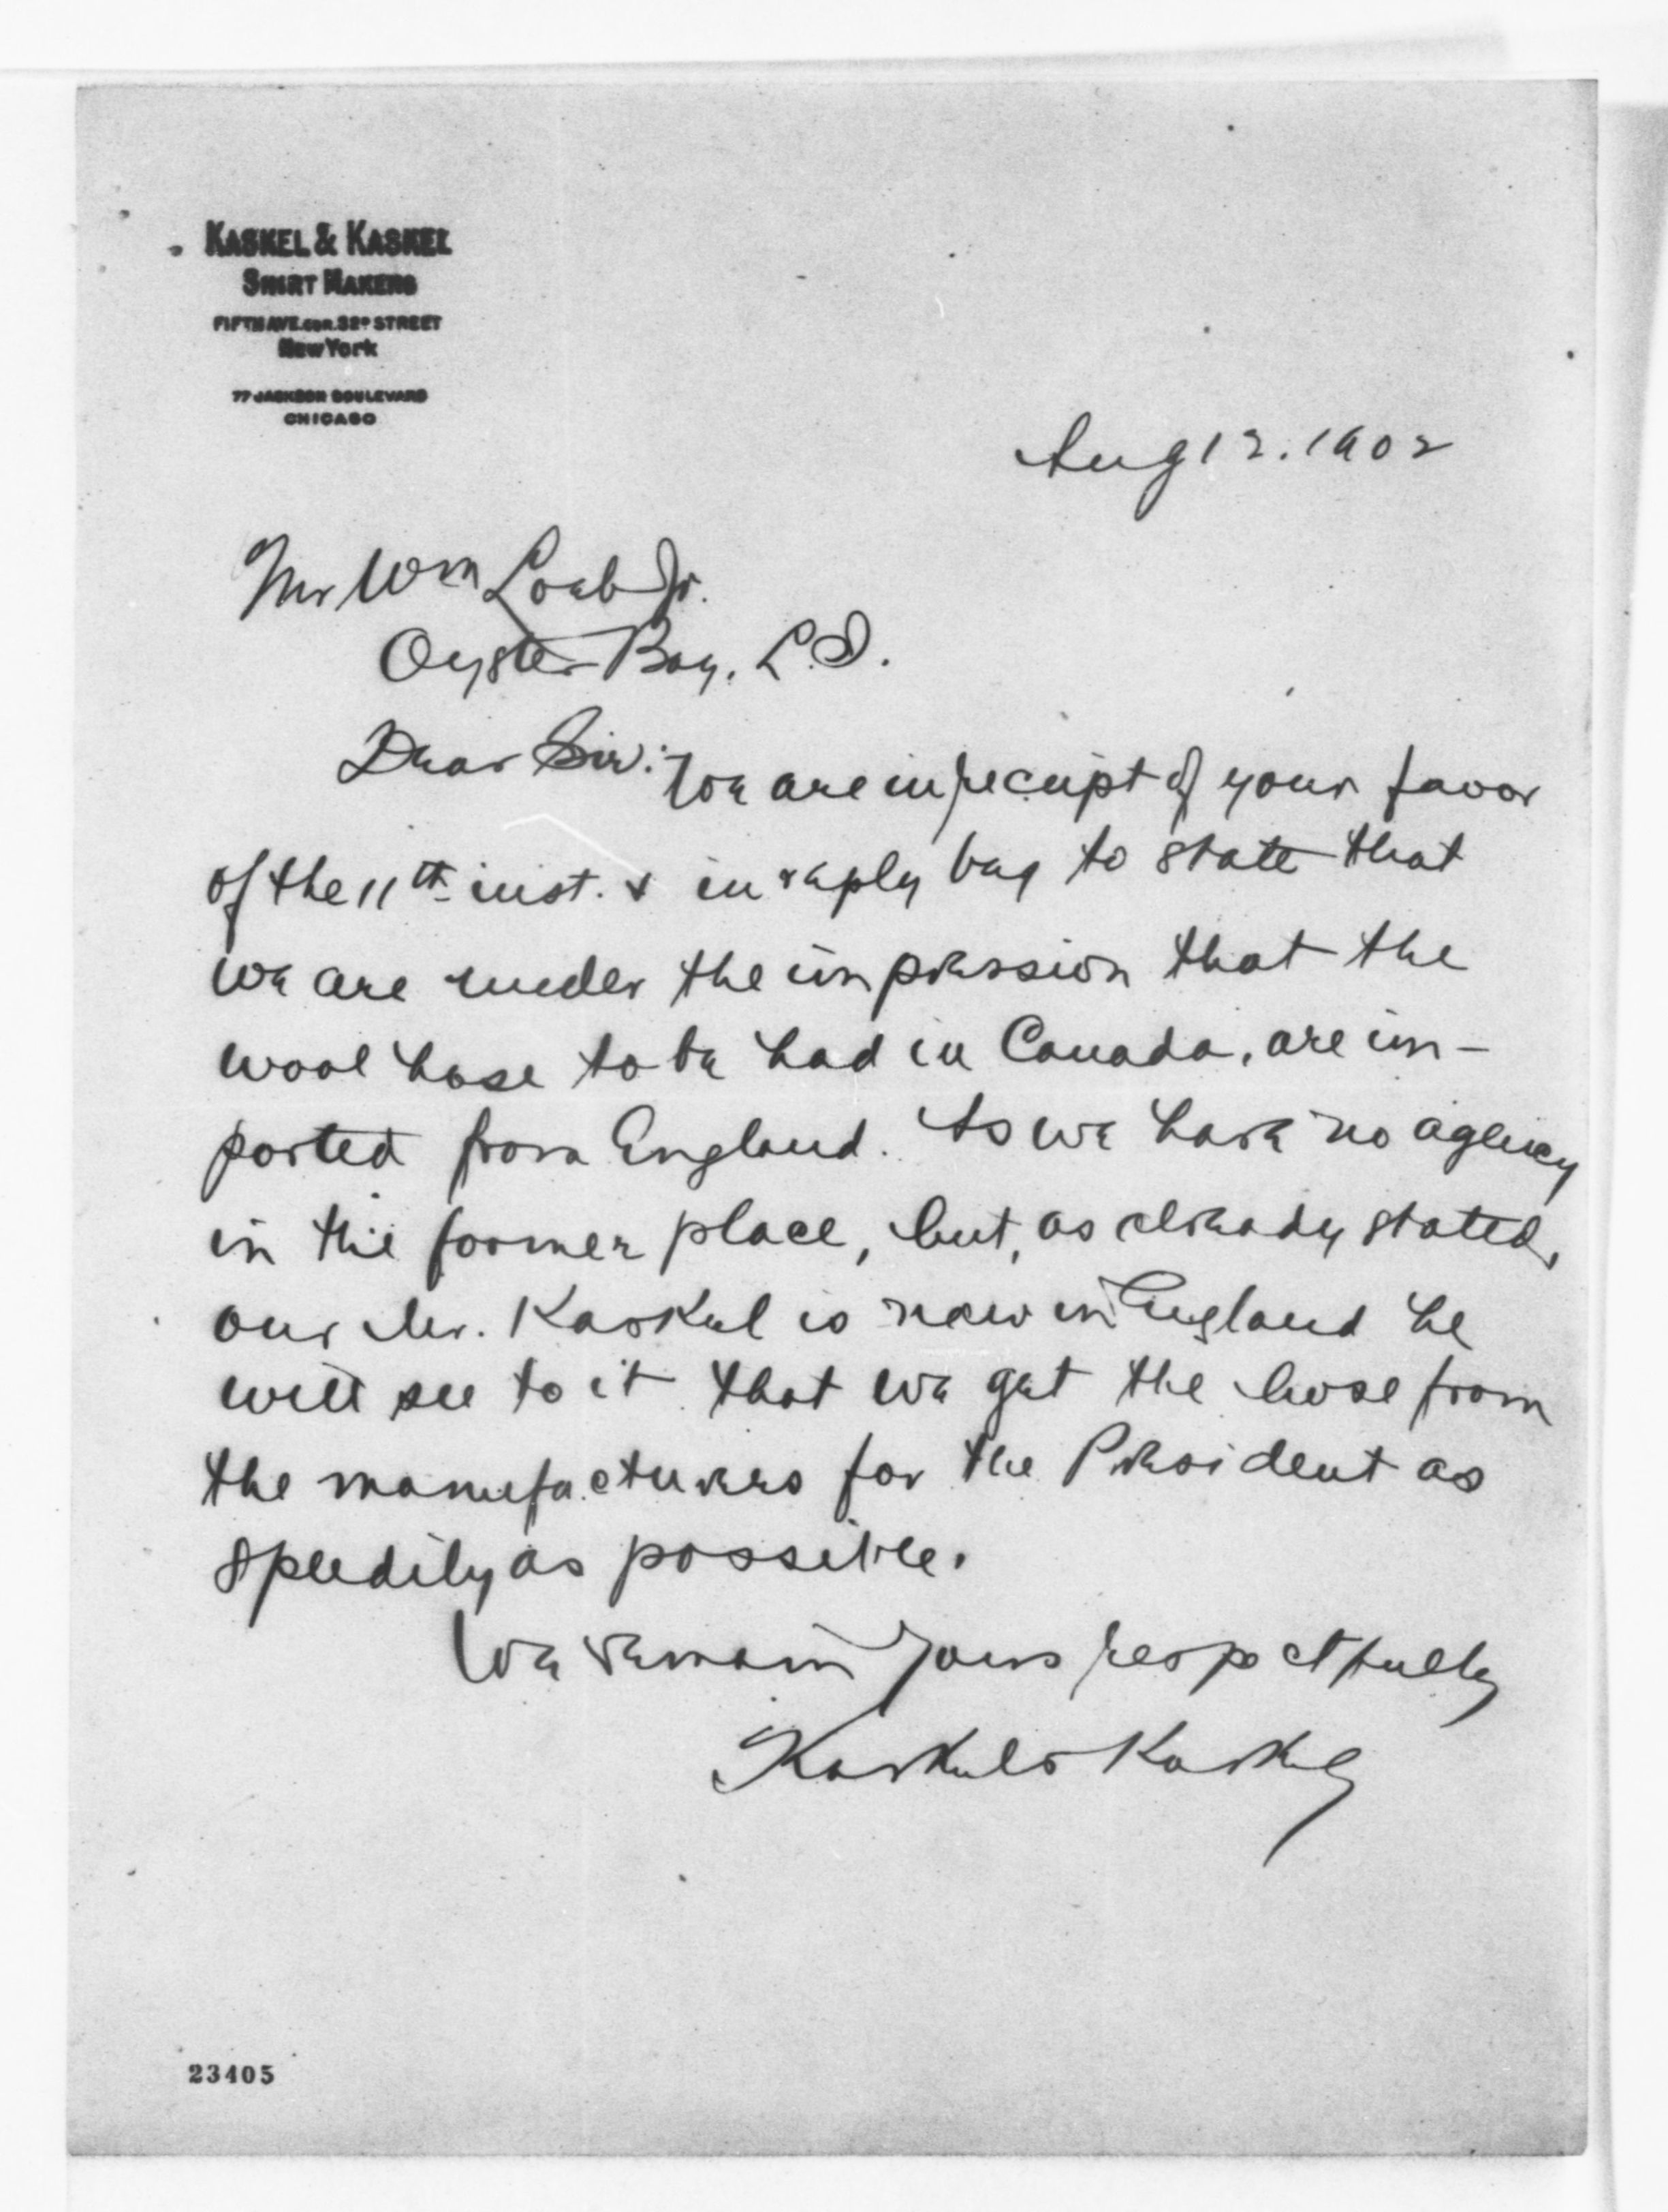 KASKEL & KASKEL
SHIRT MAKERS
FIFTH AVE. COR. 32D STREET
New York
77 JACKSON BOULEVARD
CHICAGO
Aug 12. 1902
Mr Wm Loeb Jr.
Oyster Bay. L.I.
Dear Sir:- We are in receipt of your favor
of the 11th inst. & in reply beg to state that
we are under the impression that the
wool hose to be had in Canada, are im-
ported from England. As we have no agency
in the former place, but, as already stated,
our Mr. Kaskel is now in England he
will see to it that we get the hose from
the manufacturers for the President as
speedily as possible.
We remain Yours respectfully
Kaskel & Kaskel
23405